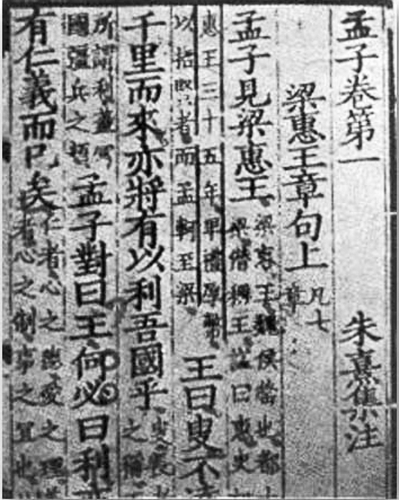 孟子卷第一 朱熹集注
梁惠王章句上 凡七章
孟子見梁惠王 梁惠王魏侯罃也都大
梁僭稱王諡曰惠史
惠王三十五年卑禮厚幣
以招賢者而孟軻至梁 王曰叟不
千里而來亦將有以利吾國乎 叟長老
之稱王
所謂利蓋富
國彊兵之類 孟子對曰王何必曰利亦
有仁義而已矣 仁者心之德愛之理
者心之制事之宜也